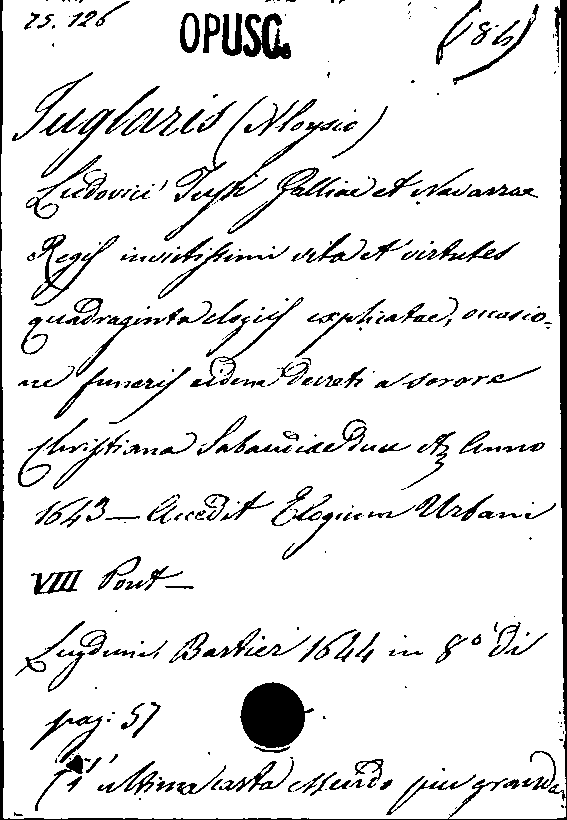 75. 126 OPUSC. (86)
Juglaris (Aloysio)
Ludovici Justi Galliae et Navarrae
Regis invictissimi vita et virtutes
quadraginta elogiis explicatae, occasio-
ne funeris eidem decreti a sorore
Christiana Sabaudiae Duce &c Anno
1643 — Accedit Elogium Urbani
VIII Pont —
Lugduni, Barbier 1644 in 8° di
pag: 57
(L' ultima carta essendo piu grande